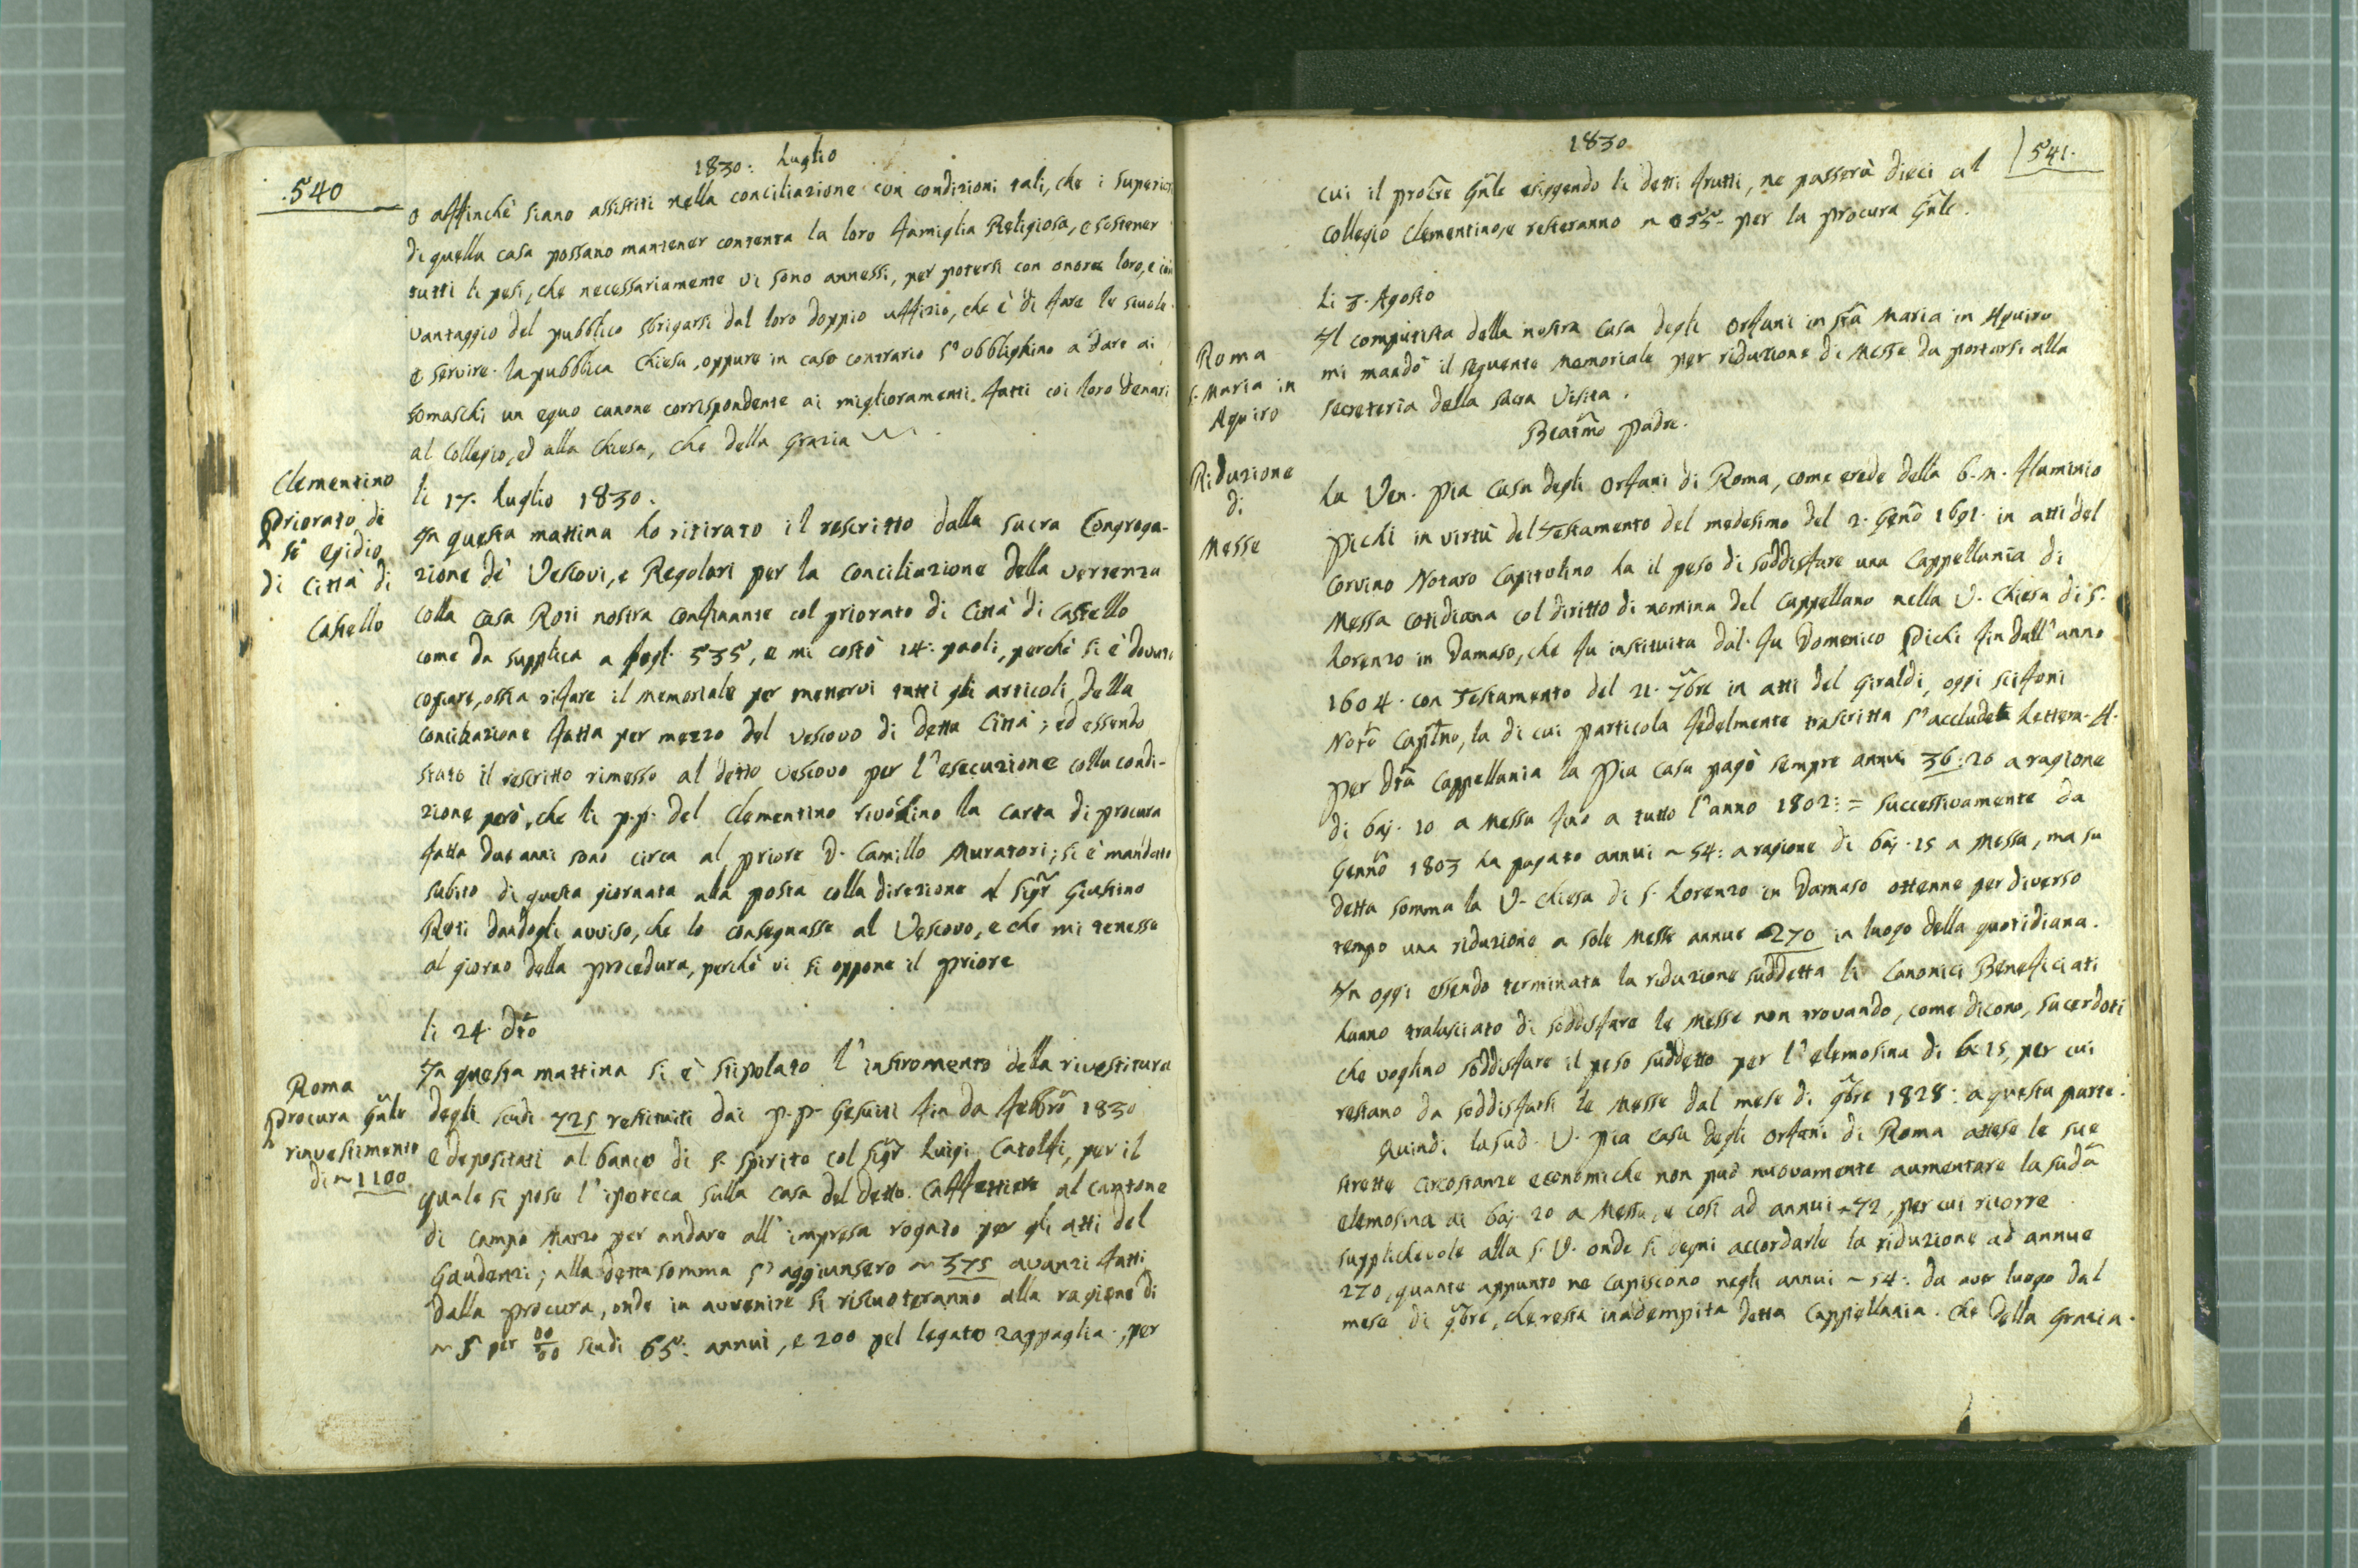 .540
1830: Luglio
o affinchè siano assistiti nella conciliazione con condizioni tali, che i superiori
di quella casa possano mantener contenta la loro famiglia Religiosa, e sostener
tutti li pesi, che necessariamente vi sono annessi, per potersi con onore loro, e con
vantaggio del pubblico sbrigarsi dal loro doppio uffizio, che è di fare le scuole
e servire la pubblica Chiesa, oppure in caso contrario s'obblighino a dare ai
somaschi un equo canone corrispondente ai miglioramenti fatti coi loro denari
al Collegio, ed alla Chiesa, che della Grazia
Clementino
Priorato di
S. Egidio
di Città di
Castello
li 17. Luglio 1830.
In questa mattina ho ritirato il rescritto dalla sacra Congrega-
zione de' Vescovi, e Regolari per la conciliazione della vertenza
colla casa Roti nostra confinante col priorato di Città di Castello
come da supplica a fogl. 535, e mi costò 14: paoli, perchè si è dovuto
copiare, ossia rifare il memoriale per mettervi tutti gli articoli della
conciliazione fatta per mezzo del vescovo di detta Città; ed essendo
stato il rescritto rimesso al detto vescovo per l'esecuzione colla condi-
zione però, che li p.p. del Clementino rivochino la carta di procura
fatta due anni sono circa al priore D. Camillo Muratori; si è mandato
subito di questa giornata alla posta colla direzione al Sigr Giustino
Roti dandogli avviso, che lo consegnasse al Vescovo, e che mi tenesse
al giorno della procedura, perchè vi si oppone il priore
Roma
Procura Gnle
rinvestimento
di ~ 1100
li 24. Dto
In questa mattina si è stipolato l'instromento della rivestitura
degli scudi 725 restituiti dai p.p. Gesuiti fin da Febbro 1830
e depositati al banco di S. Spirito col Sigr Luigi Catolfi, per il
quale si pose l'ipoteca sulla casa del detto Caffettiere al cantone
di Campo Marzo per andare all'impresa rogato per gli atti del
Gaudenzi; alla detta somma s'aggiunsero ~ 375 avanzi fatti
dalla procura, onde in avvenire si riscuoteranno alla ragione di
~ 5 per 00/00 scudi 65: annui, e 200 pel legato Zappaglia, per
1830
541.
cui il procre Gnle esiggendo li detti frutti, ne passerà dieci al
Collegio Clementino, e resteranno ~ 55- per la procura Gnle.
Roma
S. Maria in
Aquiro
li 3. Agosto
Il computista della nostra casa degli Orfani in Sta Maria in Aquiro
mi mandò il seguente memoriale per riduzione di Messe da portarsi alla
secreteria della sacra Visita.
Beatmo Padre.
Riduzione
di
Messe
La Ven. Pia Casa degli Orfani di Roma, come erede della b.m. Flaminio
Pichi in virtù del Testamento del medesimo del 2. Geno 1691. in atti del
Corvino Notaro Capitolino ha il peso di soddisfare una Cappellania di
Messa cotidiana col diritto di nomina del Cappellano nella V. Chiesa di S.
Lorenzo in Damaso, che fu instituita dal fu Domenico Pichi fin dall'anno
1604. con Testamento del 21. 7bre in atti del Giraldi, oggi Scifoni
Noto Capitno, la di cui particola fedelmente trascritta s'acclude Lettera A.
per dta Cappellania la Pia Casa pagò sempre annui 36:20 a ragione
di baj. 10 a Messa fino a tutto l'anno 1802: = successivamente da
Genno 1803 ha pagato annui ~ 54: a ragione di baj. 15 a Messa, ma su
detta somma la V. Chiesa di S. Lorenzo in Damaso ottenne per diverso
tempo una riduzione a sole Messe annue 270 in luogo della quotidiana.
In oggi essendo terminata la riduzione suddetta li Canonici Beneficiati
hanno tralasciato di soddisfare le Messe non trovando, come dicono, sacerdoti
che voglino soddisfare il peso suddetto per l'elemosina di b. 15, per cui
restano da soddisfarsi le Messe dal mese di 9bre 1828: a questa parte.
Quindi la sud. V. Pia Casa degli Orfani di Roma attese le sue
strette circostanze economiche non può nuovamente aumentare la suda
elemosina ai baj. 20 a Messa, e così ad annui ~ 72, per cui ricorre
supplichevole alla S.V. onde si degni accordarle la riduzione ad annue
270, quante appunto ne capiscono negli annui ~ 54: da aver luogo dal
mese di 9bre, che resta inadempita detta Cappellania. Che della Grazia.